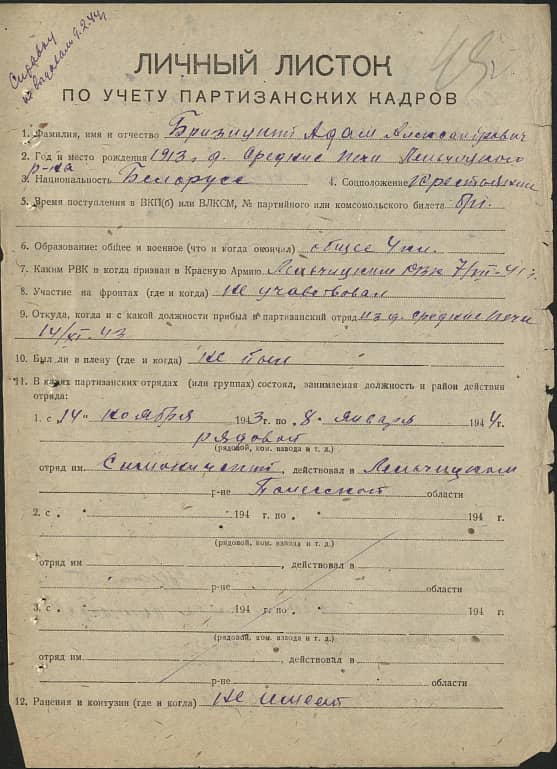 Справку
9.2.44
ЛИЧНЫЙ ЛИСТОК
ПО УЧЕТУ ПАРТИЗАНСКИХ КАДРОВ
1. Фамилия, имя и отчество Бризицкий Адам Александрович
2. Год и место рождения 1913, д. Средние Печи Лельчицкого
р-на
3. Национальность Белорусс 4. Соцположение Крестьянин
5. Время поступления в ВКП(б) или ВЛКСМ, № партийного или комсомольского билета б/п.
6. Образование: общее и военное (что и когда окончил) общее 4 кл.
7. Каким РВК и когда призван в Красную Армию Лельчицким РВК 7/VII-41 г.
8. Участие на фронтах (где и когда) не учавствовал
9. Откуда, когда и с какой должности прибыл в партизанский отряд из д. Средние Печи
14/XI.43
10. Был ли в плену (где и когда) не был
11. В каких партизанских отрядах (или группах) состоял, занимаемая должность и район действия
отряда:
1. с „14" ноября 1943г. по „8„ января 1944г.
рядовой
(рядовой, ком. взвода и т. д.)
отряд им. , действовал в Лельчицком
р-не Полесской области
2. с „ 194 г. по „ 194 г.
(рядовой, ком. взвода и т. д.)
отряд им. , действовал в
р-не области
3. с „ 194 г. по „ 194 г.
(рядовой, ком. взвода и т. д.)
отряд им. , действовал в
р-не области
12. Ранения и контузии (где и когда) не имеет